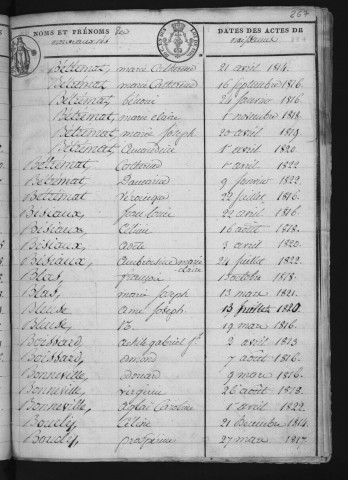 267
NOMS ET PRÉNOMS des
nouveaux nés
DATES DES ACTES DE
naissance
Bétrémat, marie Catherine 21 avril 1814.
Bétrémat, marie Catherine 16 septembre 1816.
Bétrémat, 24 janvier 1816.
Bétrémat, marie claire 1er novembre 1818.
Bétrémat, marie joseph 20 avril 1819.
Bétrémat, Amandine 1er avril 1820.
Bétrémat, Catherine 1er avril 1822.
Bétrémat, 9 janvier 1822.
Bétrémat, Véronique 22 juillet 1816.
Biseaux, jean louis 22 avril 1816.
Biseaux, Céline 16 août 1818.
Biseaux, 2 avril 1820.
Biseaux, Ambroisine marie claire 24 juillet 1822.
Blas, françois 13 octobre 1818.
Blas, marie joseph 13 mars 1821.
Bleuse, aimé joseph 13 juillet 1820.
Bleuse, 19 mars 1816.
Boissard, gabriel 2 avril 1813
Boissard, amand 7 août 1816.
Bonneville, édouard 9 mars 1816.
Bonneville, virginie 26 août 1818.
Bonneville, aglaé Caroline 1er avril 1822.
Boudy, Céline 21 Décembre 1814.
Boudy, prospérine 27 mars 1817.